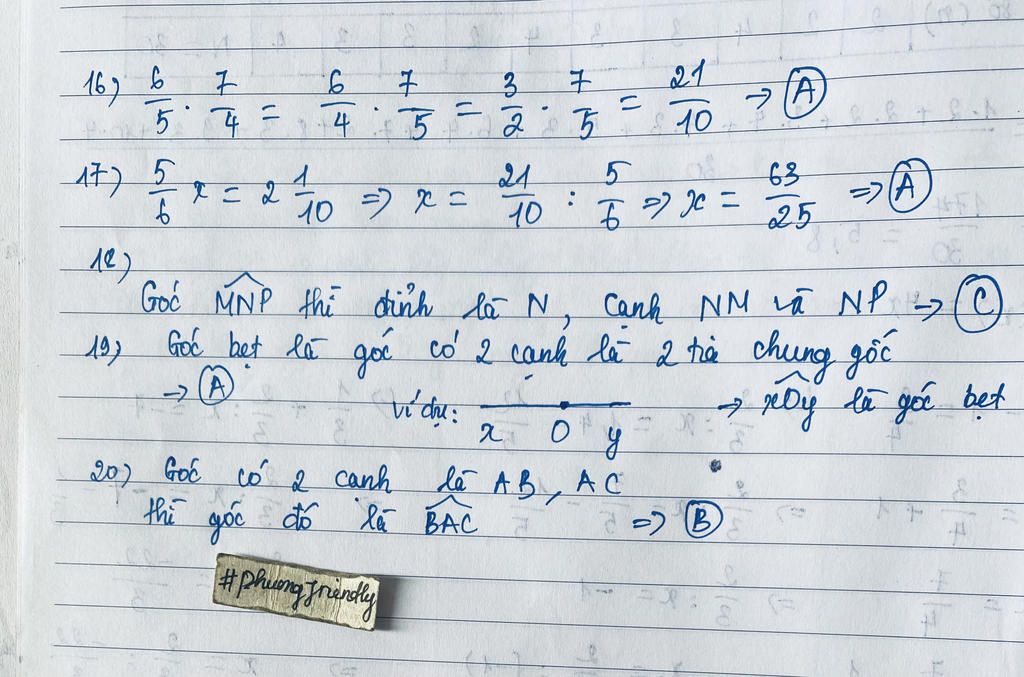 16) 6/5 . 7/4 = 6/4 . 7/5 = 3/2 . 7/5 = 21/10 → A
17) 5/6 x = 2 1/10 => x = 21/10 : 5/6 => x = 63/25 => A
18)
Góc MNP thì đỉnh là N, cạnh NM và NP → C
19) Góc bẹt là góc có 2 cạnh là 2 tia chung gốc
→ A
ví dụ: x O y → xOy là góc bẹt
20) Góc có 2 cạnh là AB, AC
thì góc đó là BAC => B
#phuongfriendly